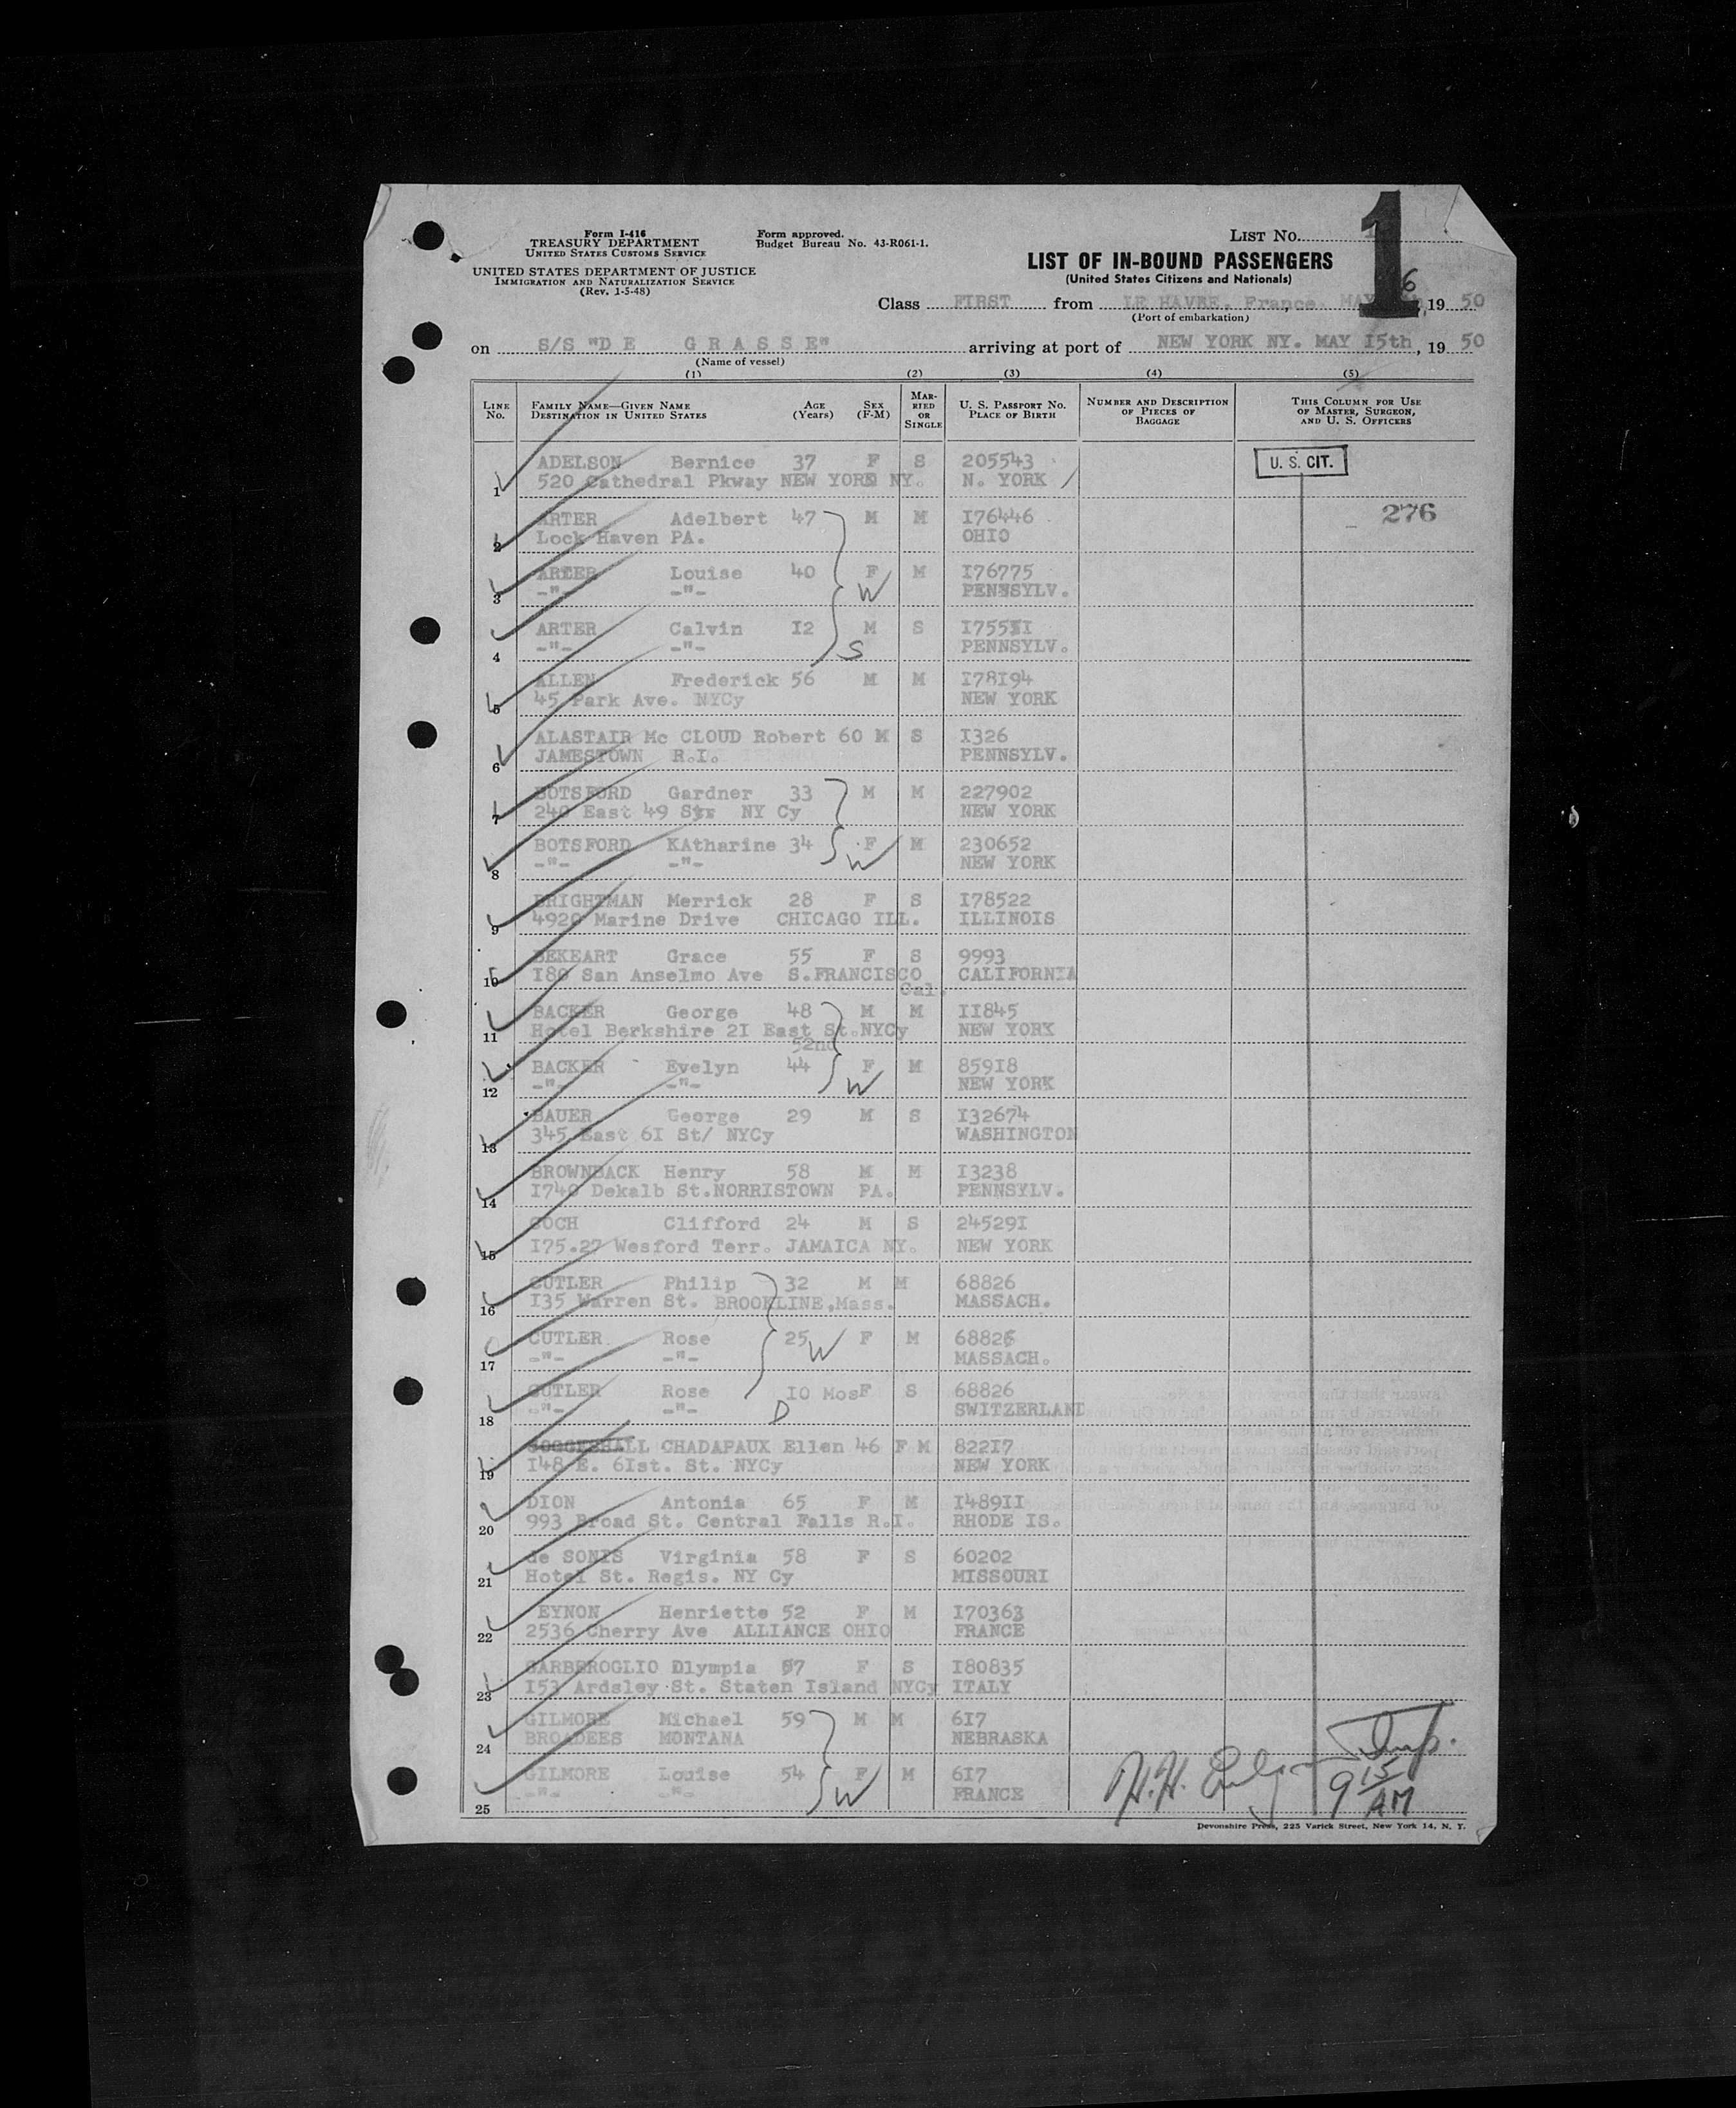 Form I-416
TREASURY DEPARTMENT
UNITED STATES CUSTOMS SERVICE
UNITED STATES DEPARTMENT OF JUSTICE
IMMIGRATION AND NATURALIZATION SERVICE
(Rev. 1-5-48)
Form approved.
Budget Bureau No. 43-R061-1.
LIST NO.
1
LIST OF IN-BOUND PASSENGERS
(United States Citizens and Nationals)
Class FIRST from LE HAVRE, France. MAY 6, 19 50
(Port of embarkation)
on S/S "D E G R A S S E" arriving at port of NEW YORK NY. MAY I5th, 19 50
(Name of vessel)
(1) (2) (3) (4) (5)
LINE No. FAMILY NAME—GIVEN NAME DESTINATION IN UNITED STATES AGE (Years) SEX (F-M) MARRIED OR SINGLE U. S. PASSPORT NO. PLACE OF BIRTH NUMBER AND DESCRIPTION OF PIECES OF BAGGAGE THIS COLUMN FOR USE OF MASTER, SURGEON, AND U. S. OFFICERS
ADELSON Bernice 37 F S 205543 U. S. CIT.
1 520 Cathedral Pkway NEW YORK NY. N. YORK
ARTER Adelbert 47 M M I76446 276
2 Lock Haven PA. OHIO
ARTER Louise 40 F M I76775
3 -"- -"- W PENNSYLV.
ARTER Calvin I2 M S
4 -"- -"- S PENNSYLV.
ALLEN Frederick 56 M M I78I94
5 45 Park Ave. NYCy NEW YORK
ALASTAIR Mc CLOUD Robert 60 M S I326
6 JAMESTOWN R.I. PENNSYLV.
BOTSFORD Gardner 33 M M 227902
7 240 East 49 Str NY Cy NEW YORK
BOTSFORD KAtharine 34 F M 230652
8 -"- -"- W NEW YORK
BRIGHTMAN Merrick 28 F S I78522
9 4920 Marine Drive CHICAGO ILL. ILLINOIS
BEKEART Grace 55 F S 9993
10 I80 San Anselmo Ave S.FRANCISCO CALIFORNIA
Cal.
BACKER George 48 M M II845
11 Hotel Berkshire 2I East St.NYCy NEW YORK
52nd
BACKER Evelyn 44 F M 859I8
12 -"- -"- W NEW YORK
BAUER George 29 M S I32674
13 345 East 6I St/ NYCy WASHINGTON
BROWNBACK Henry 58 M M I3238
14 I740 Dekalb St.NORRISTOWN PA. PENNSYLV.
Clifford 24 M S 24529I
15 I75.27 Wesford Terr. JAMAICA NY. NEW YORK
CUTLER Philip 32 M M 68826
16 I35 Warren St. BROOKLINE,Mass. MASSACH.
CUTLER Rose 25 W F M 68826
17 -"- -"- MASSACH.
CUTLER Rose IO Mos F S 68826
18 -"- -"- D SWITZERLAND
CHADAPAUX Ellen 46 F M 822I7
19 I48 E. 6Ist. St. NYCy NEW YORK
DION Antonia 65 F M I489II
20 993 Broad St. Central Falls R.I. RHODE IS.
de SONIS Virginia 58 F S 60202
21 Hotel St. Regis. NY Cy MISSOURI
EYNON Henriette 52 F M I70363
22 2536 Cherry Ave ALLIANCE OHIO FRANCE
GARBEROGLIO Olympia 57 F S I80835
23 I53 Ardsley St. Staten Island NYCy ITALY
GILMORE Michael 59 M M 6I7
24 BROADEES MONTANA NEBRASKA
GILMORE Louise 54 F M 6I7
25 -"- -"- W FRANCE
H.H. Insp.
9 15 AM
Devonshire Press, 225 Varick Street, New York 14, N. Y.